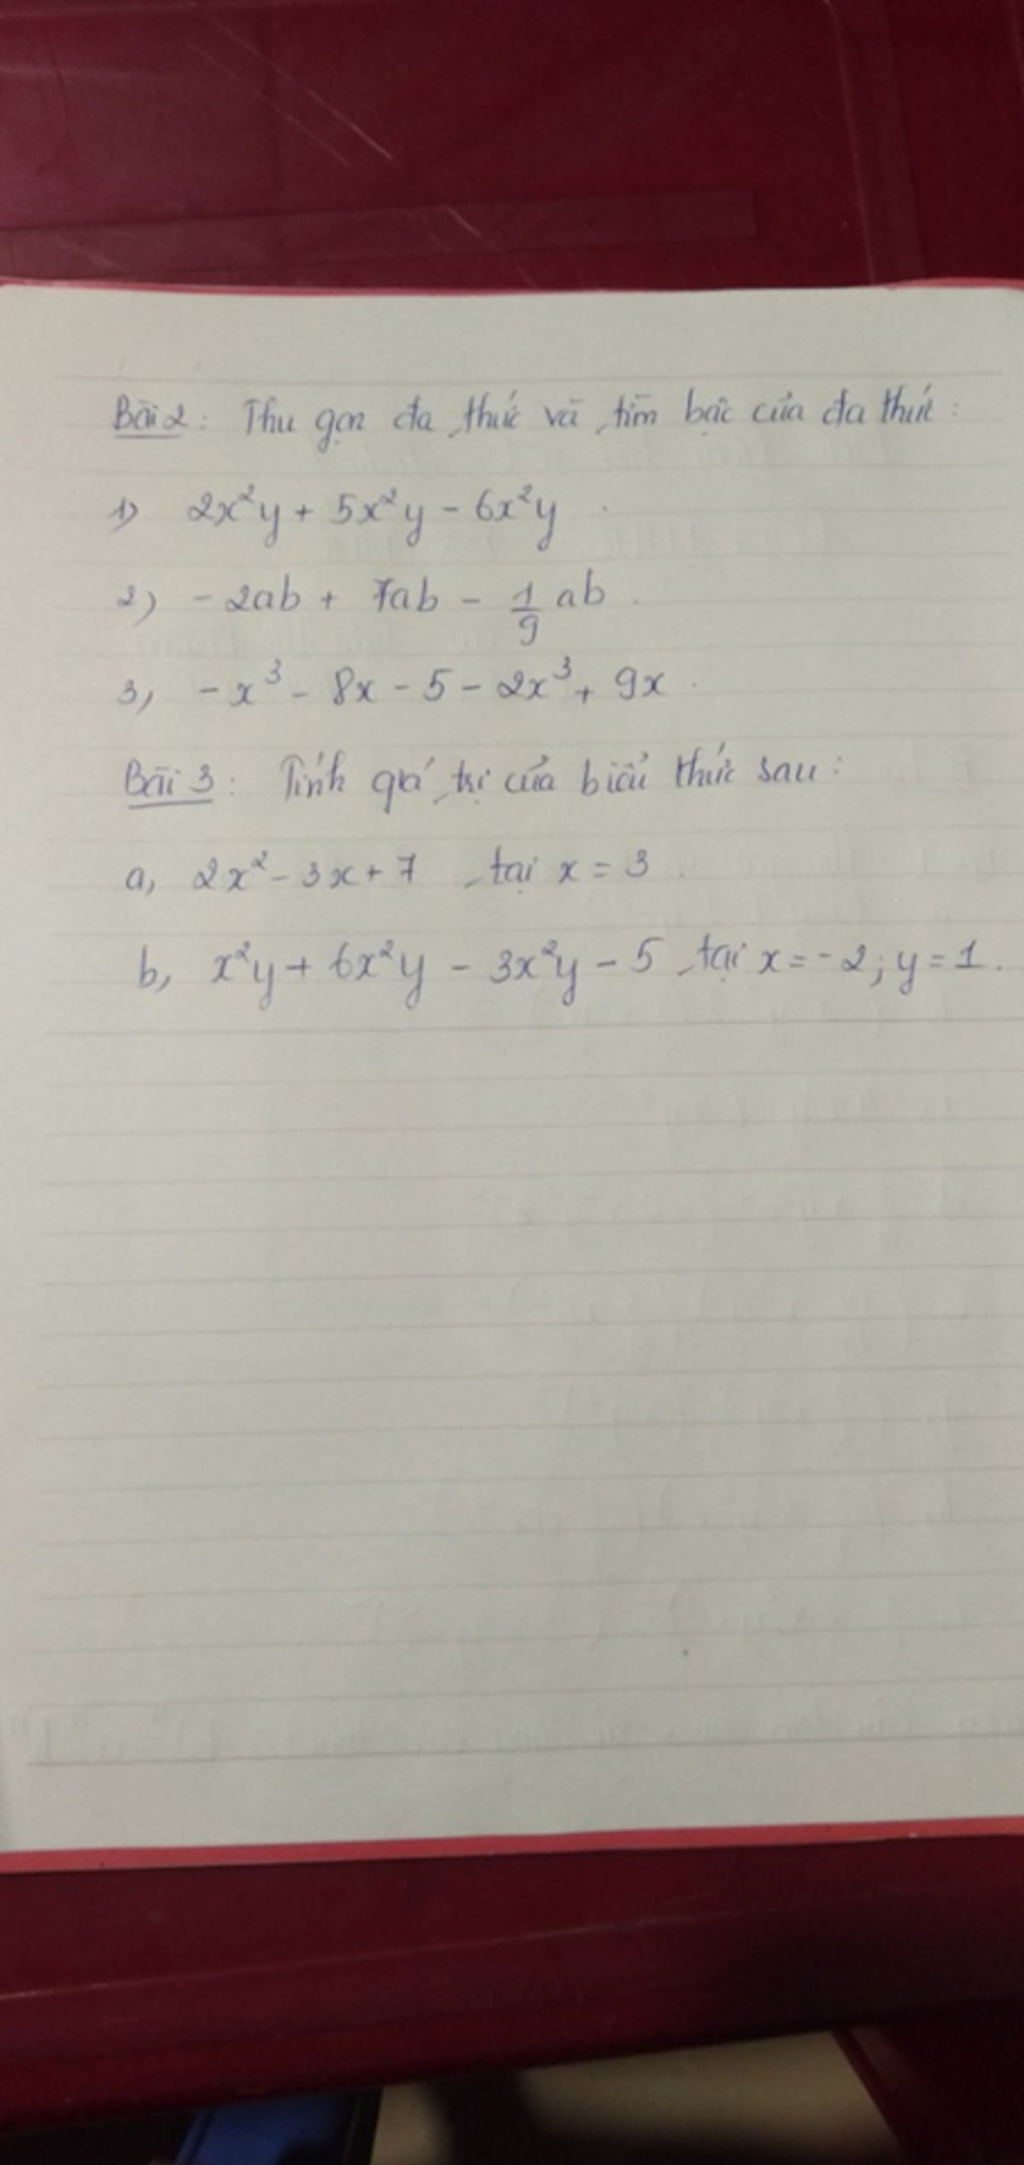 Bài 2: Thu gọn đa thức và tìm bậc của đa thức:
1) 2x²y + 5x²y - 6x²y
2) -2ab + 7ab - 1/9 ab.
3, -x³ - 8x - 5 - 2x³ + 9x.
Bài 3: Tính giá trị của biểu thức sau:
a, 2x² - 3x + 7 tại x = 3.
b, x²y + 6x²y - 3x²y - 5 tại x = -2; y = 1.